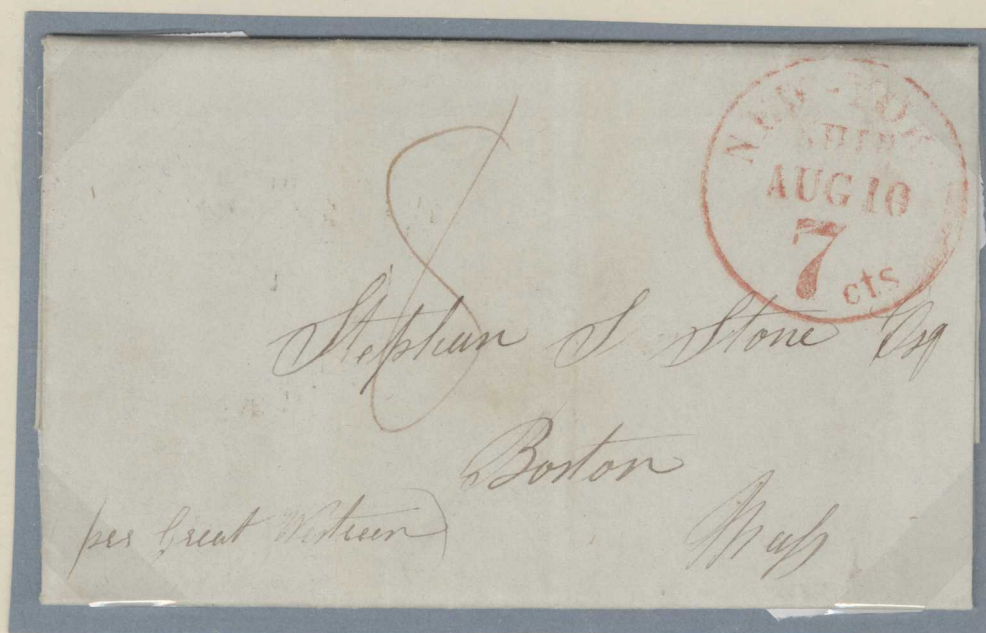 NEW-YORK
SHIP
AUG 10
7 cts
8
Stephen S Stone Esq
Boston
Mass
per Great Western